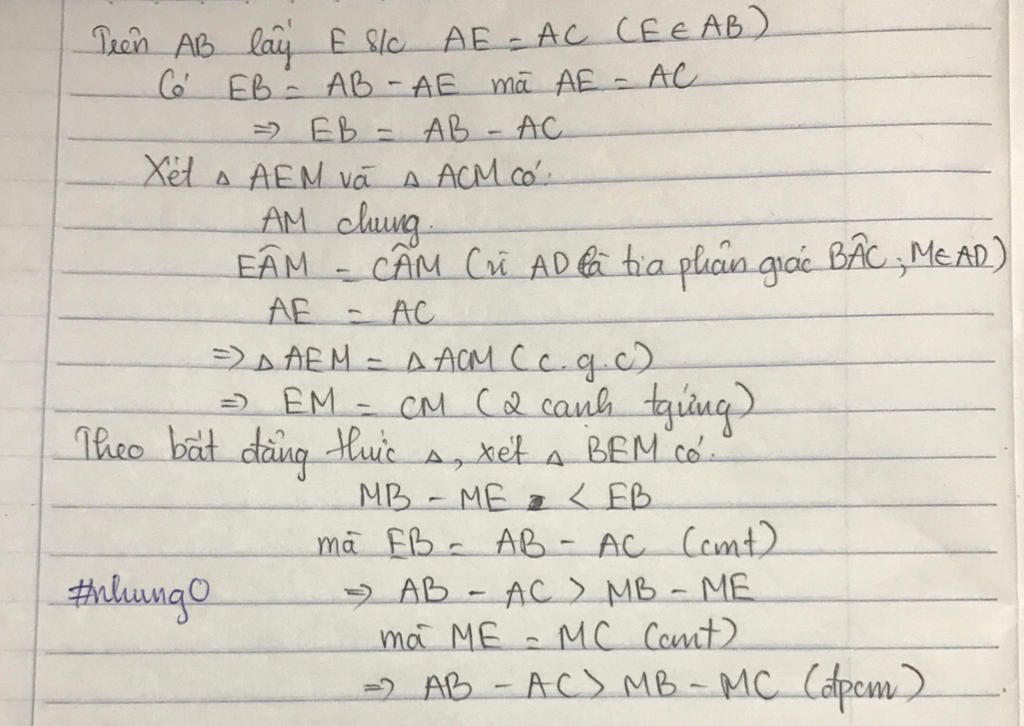 Trên AB lấy E s/c AE = AC (E ∈ AB)
Có EB = AB - AE mà AE = AC
=> EB = AB - AC
Xét △ AEM và △ ACM có:
AM chung.
EÂM = CÂM (vì AD là tia phân giác BÂC; M∈AD)
AE = AC
=> △ AEM = △ ACM (c.g.c)
=> EM = CM (2 cạnh tgứng)
Theo bất đẳng thức △, xét △ BEM có:
MB - ME < EB
mà EB = AB - AC (cmt)
#nhung0 => AB - AC > MB - ME
mà ME = MC (cmt)
=> AB - AC > MB - MC (đpcm)